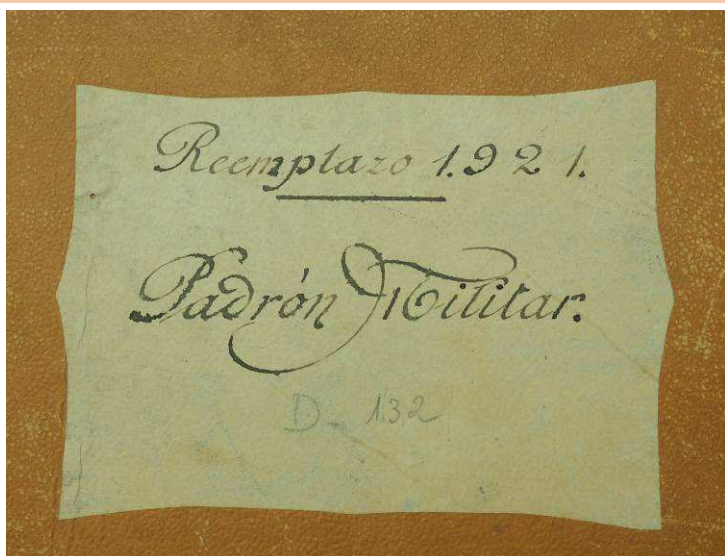 Reemplazo 1.921.
Padrón Militar.
D. 132